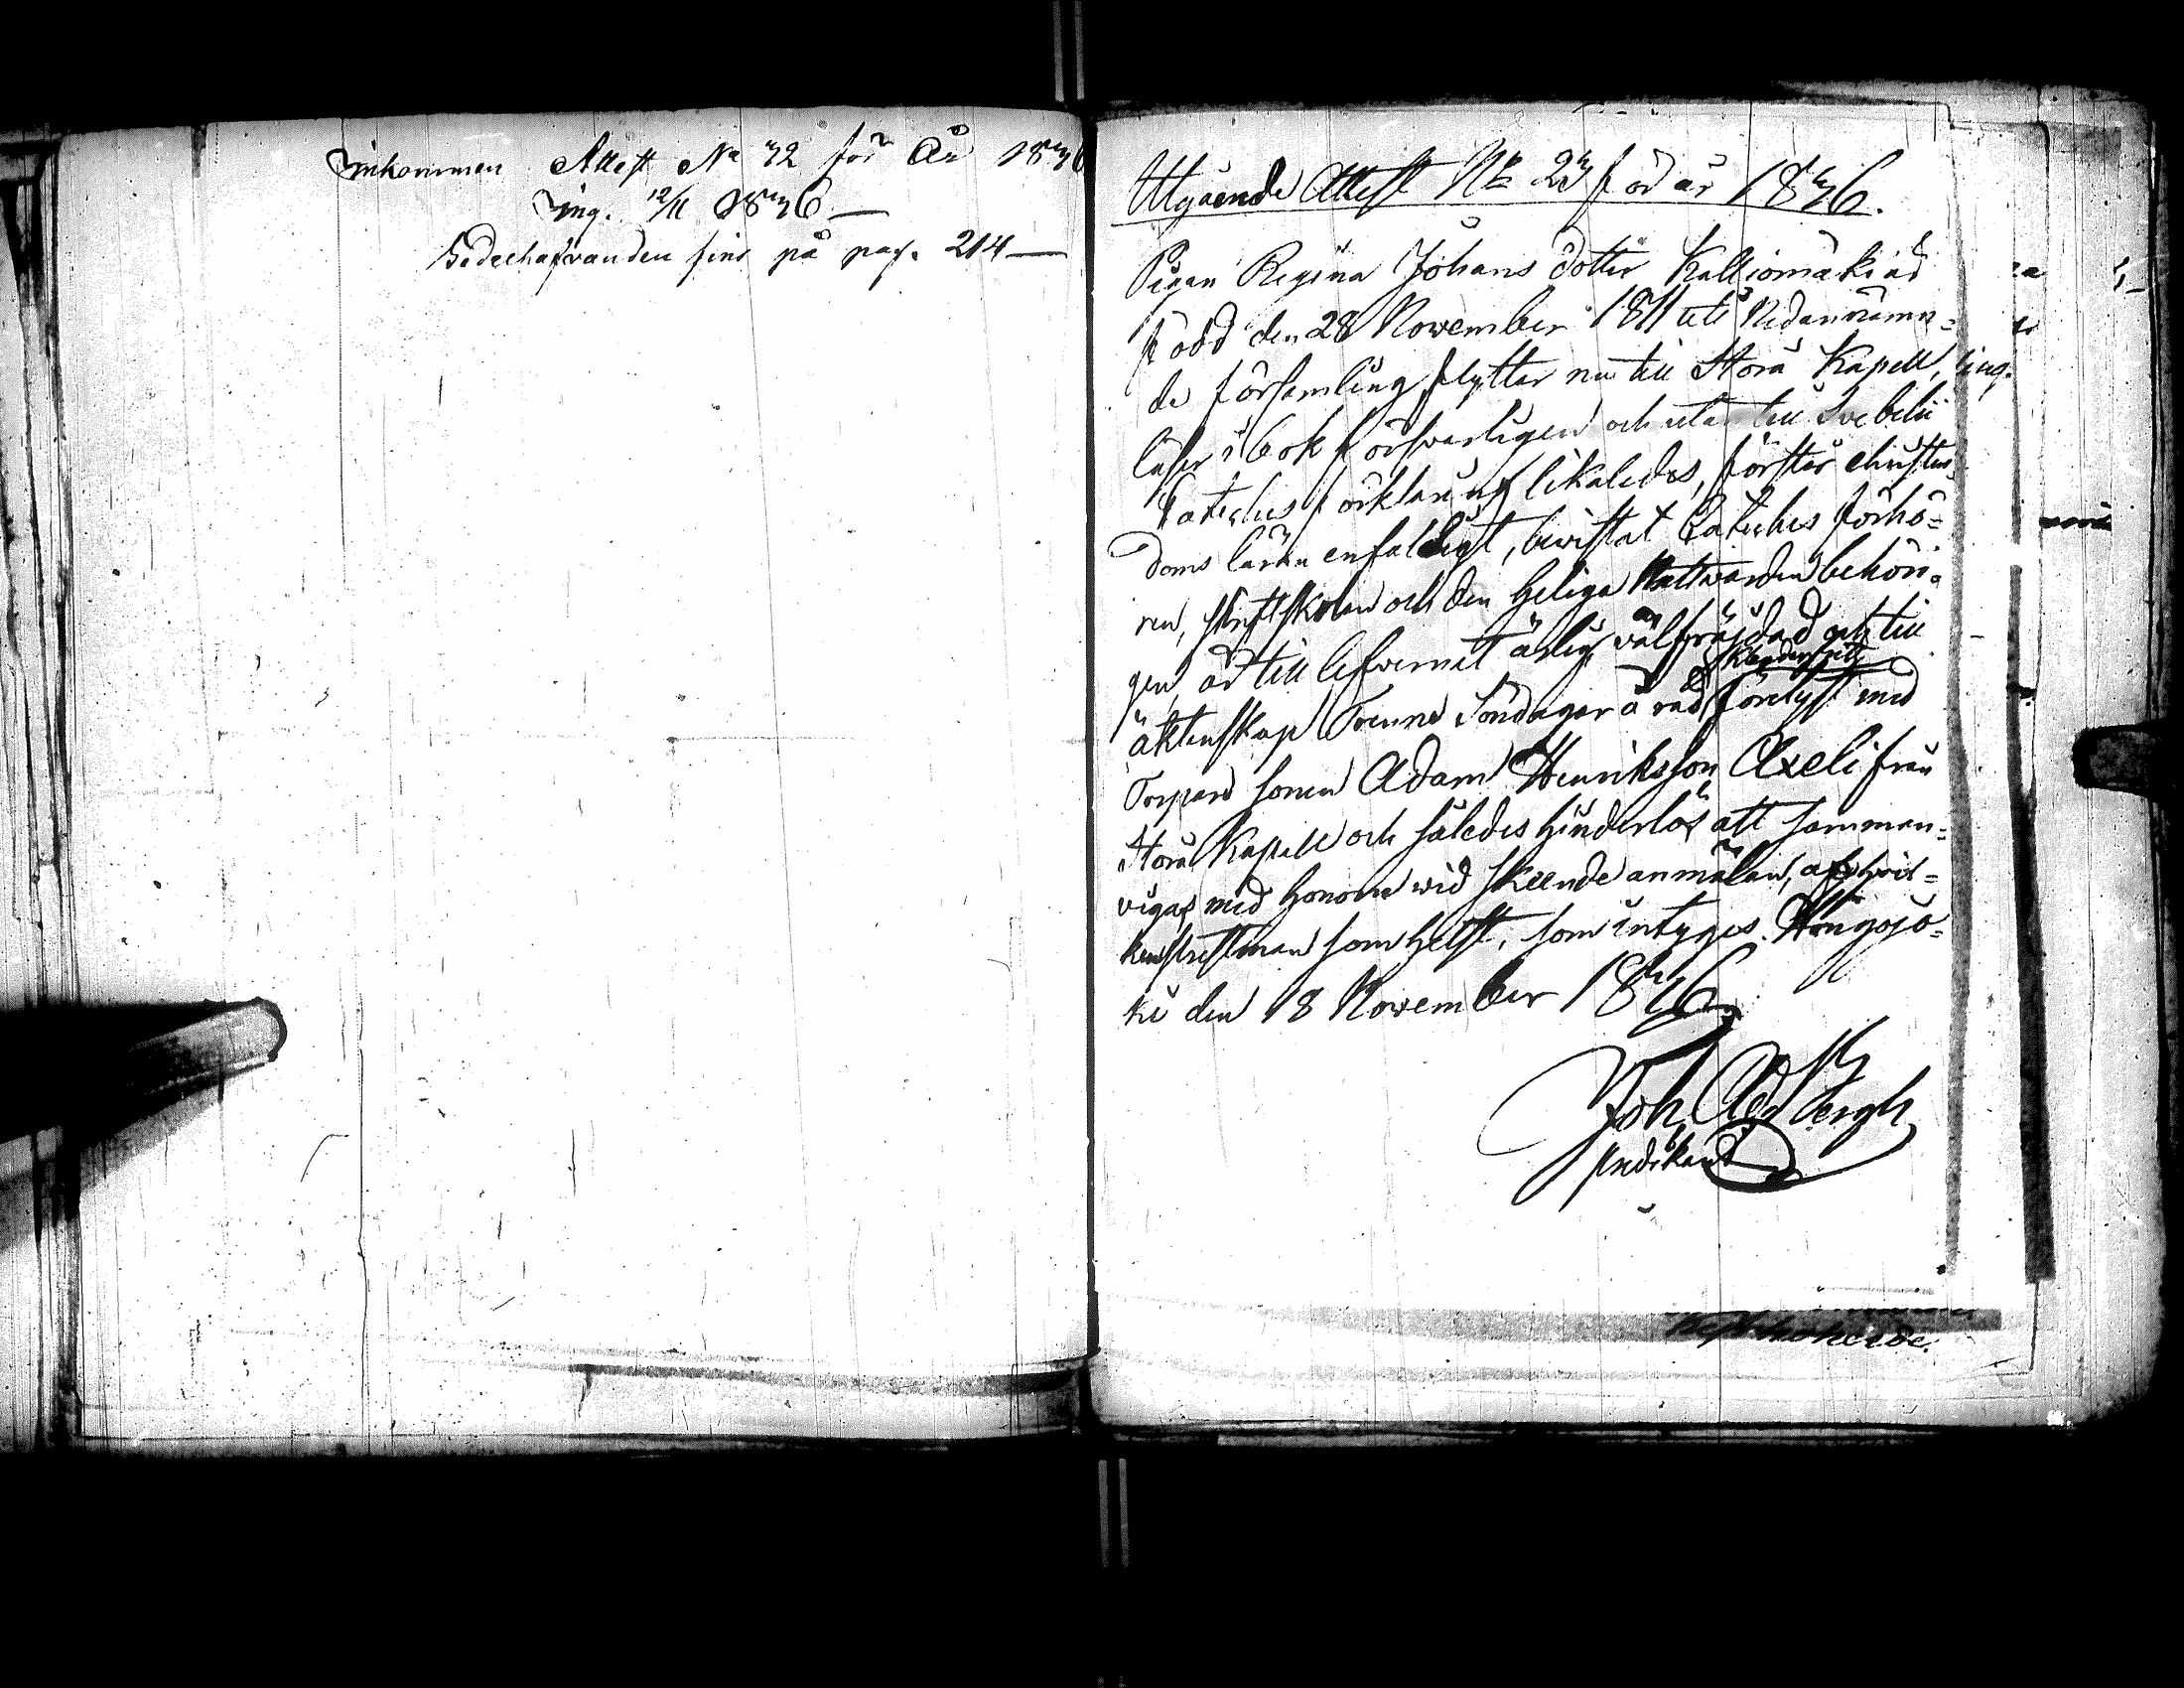 Inkommen Attest No 32 för År 1836
Ing. 12/11 1836
Bedechafvanden fins på pag. 214
Utgående Attest No 23 för år 1836.
Pigan Regina Johans dotter Kalliomäki är
född den 28 November 1811 uti Nedannämn=
de församling, flyttar nu till Storå Kapell,
läser i bok försvarligen och utantill Svebelii
Cateches förklaring likaledes, förstår christen
doms läran enfaldigt, bevistat Catechis förhö=
ren, skriftskolan och den Heliga Nattwarden behöri=
gen, är till lefvernet ärlig, välfräjdad och till
äktenskap Trenne Söndagar å rad förelyst med
Torpare sonen Adam Henriksson Axeli från
Storå Kapell och således hinderlös att samman=
vigas med honom wid skeende anmälan, af hvil=
ken prestman som helst, som intygas. Hongojo=
ki den 18 November 1836.
Joh. Bergh
predikant